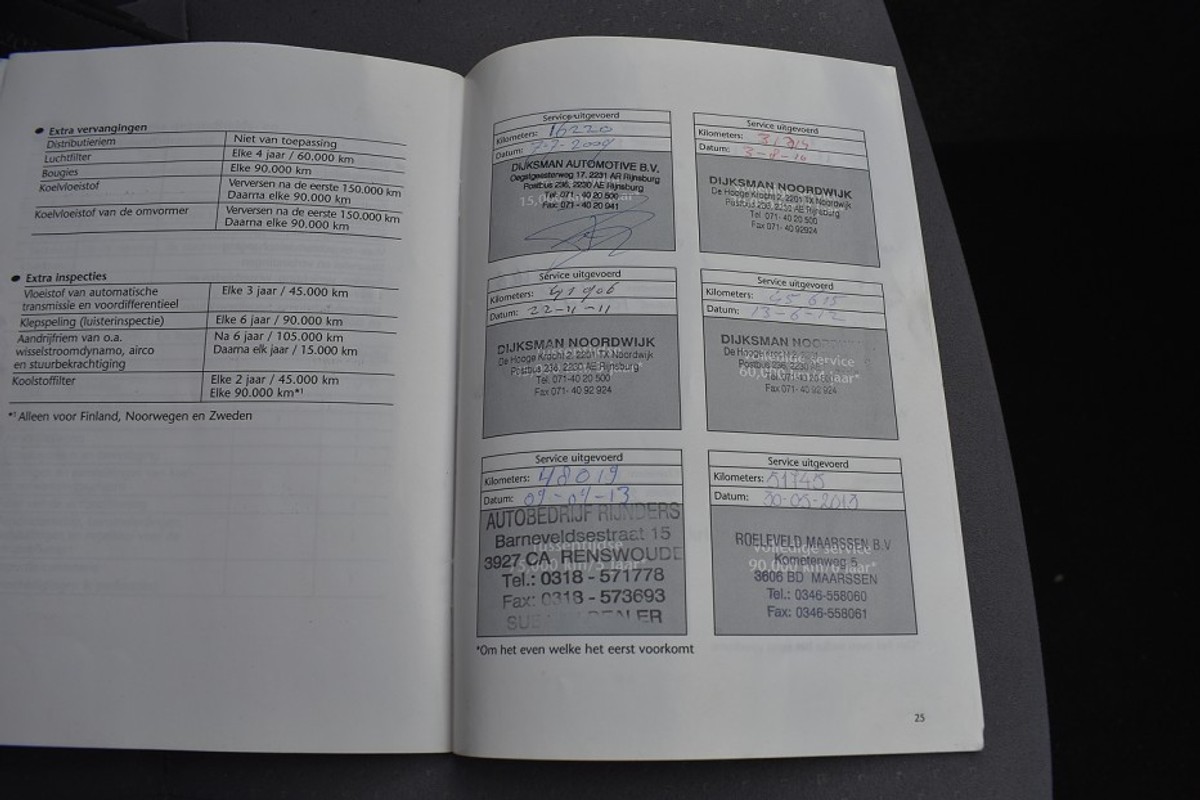 • Extra vervangingen
Distributieriem Niet van toepassing
Luchtfilter Elke 4 jaar / 60.000 km
Bougies Elke 90.000 km
Koelvloeistof Verversen na de eerste 150.000 km
Daarna elke 90.000 km
Koelvloeistof van de omvormer Verversen na de eerste 150.000 km
Daarna elke 90.000 km
• Extra inspecties
Vloeistof van automatische Elke 3 jaar / 45.000 km
transmissie en voordifferentieel
Klepspeling (luisterinspectie) Elke 6 jaar / 90.000 km
Aandrijfriem van o.a. Na 6 jaar / 105.000 km
wisselstroomdynamo, airco Daarna elk jaar / 15.000 km
en stuurbekrachtiging
Koolstoffilter Elke 2 jaar / 45.000 km
Elke 90.000 km*¹
*¹ Alleen voor Finland, Noorwegen en Zweden
Service uitgevoerd
Kilometers: 16220
Datum: 7-7-2009
DIJKSMAN AUTOMOTIVE B.V.
Oegstgeesterweg 17, 2231 AR Rijnsburg
Postbus 236, 2230 AE Rijnsburg
Tel: 071 - 40 20 500
Fax: 071 - 40 20 941
Service uitgevoerd
Kilometers:
Datum: 3-8-10
DIJKSMAN NOORDWIJK
De Hooge Krocht 2, 2201 TX Noordwijk
Postbus 236, 2230 AE Rijnsburg
Tel. 071- 40 20 500
Fax 071- 40 92924
Service uitgevoerd
Kilometers: 41906
Datum: 22-11-11
DIJKSMAN NOORDWIJK
De Hooge Krocht 2, 2201 TX Noordwijk
Postbus 236, 2230 AE Rijnsburg
Tel. 071-40 20 500
Fax 071- 40 92 924
Service uitgevoerd
Kilometers: 45 615
Datum: 13-6-12
DIJKSMAN NOORDWIJK
De Hooge Krocht 2,
Volledige service
Postbus 236, 2230 AE
60,000 km/4 jaar*
Fax 071- 40 92 924
Service uitgevoerd
Kilometers: 48019
Datum: 09-04-13
AUTOBEDRIJF RIJNDERS
Barneveldsestraat 15
Tussentijdse
3927 CA. RENSWOUDE
75,000 km/5 jaar*
Tel.: 0318 - 571778
Fax: 0318 - 573693
SUBARU DEALER
Service uitgevoerd
Kilometers: 51745
Datum: 30-05-2013
ROELEVELD MAARSSEN B.V
Volledige service
Kometenweg 5
90,000 km/6 jaar*
3606 BD MAARSSEN
Tel.: 0346-558060
Fax: 0346-558061
*Om het even welke het eerst voorkomt
25